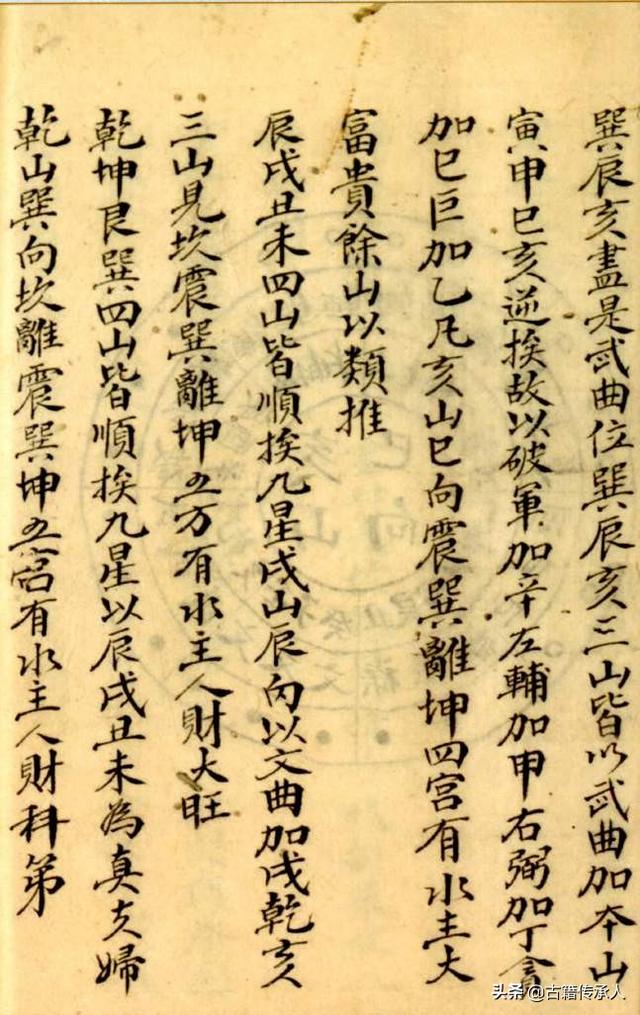 巽辰亥盡是武曲位巽辰亥三山皆以武曲加本山
寅申巳亥逆挨故以破軍加辛左輔加甲右弼加丁貪
加巳巨加乙凡亥山巳向震巽離坤四宮有水主大
富貴餘山以類推
辰戌丑未四山皆順挨九星戌山辰向以文曲加戌乾亥
三山見坎震巽離坤五方有水主人財大旺
乾坤艮巽四山皆順挨九星以辰戌丑未為真夫婦
乾山巽向坎離震巽坤五宮有水主人財科第
头条 @古籍传承人